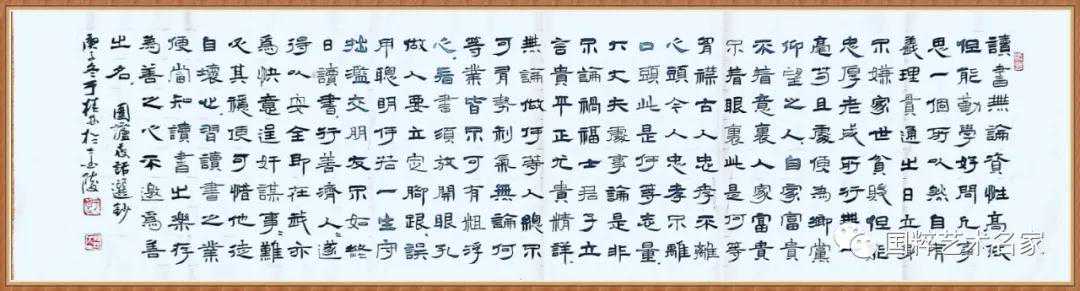 讀書無論資性高低
但能勤學好問凡事
思一個所以然自有
義理貫通之日立身
不嫌家世貧賤但能
忠厚老成所行無一
毫苟且處便為鄉黨
仰望之人自家富貴
不着意裏人家富貴
不着眼裏此是何等
胷襟古人忠孝不離
心頭今人忠孝不離
口頭此是何等志量
大丈夫處事論是非
不論禍福士君子立
言貴平正尤貴精詳
無論做何等人總不
可有勢利氣無論何
等業皆不可有粗浮
心看書須放開眼孔
做人要立定腳跟誤
用聰明何若一生守
拙濫交朋友不如終
日讀書行善濟人〻遂
得以安全即在我亦
為快意逞奸謀事〻難
必其穩便可惜他徒
自壞心習讀書之業
便當知讀書之樂存
為善之心不邀為善
之名
圍爐夜話選鈔
庚子冬于於金陵
国粹艺术名家